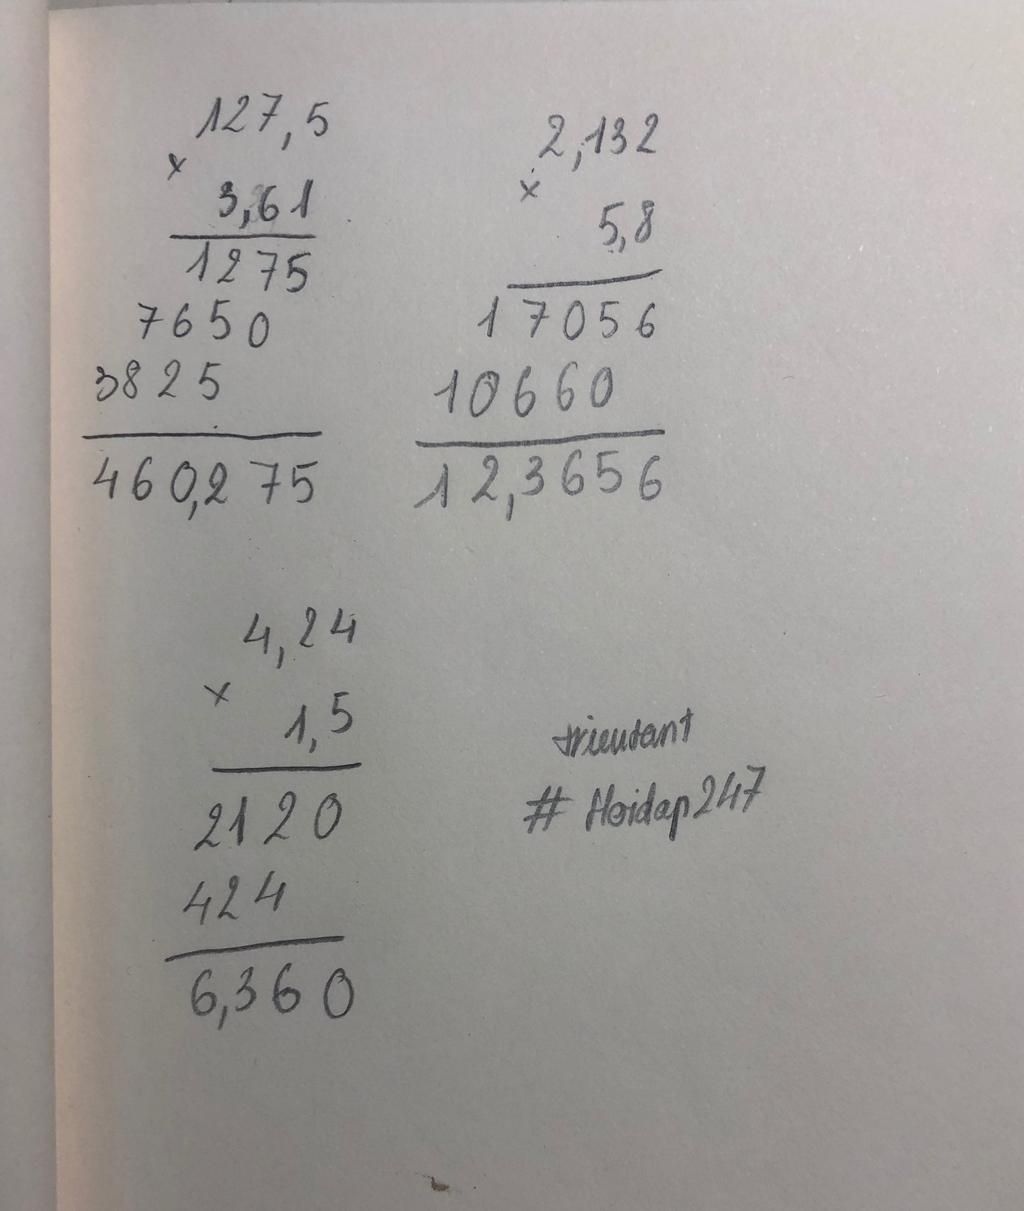 127,5
×
3,61
1275
7650
3825
460,275
2,132
×
5,8
17056
10660
12,3656
4,24
×
1,5
2120
424
6,360
trieutant
# Hoidap247